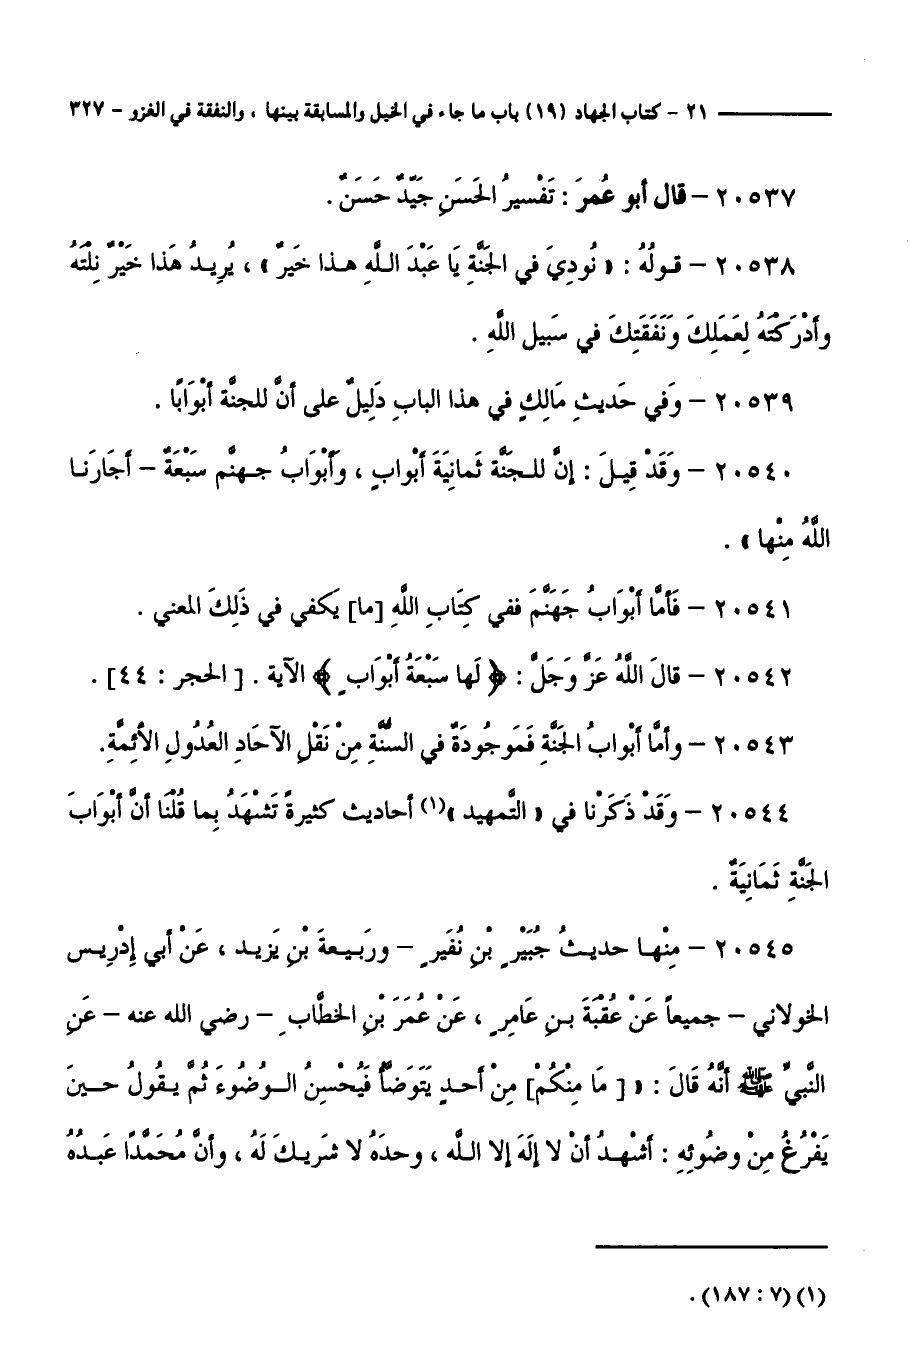 ٢١ - كتاب الجهاد (١٩) باب ما جاء في الخيل والمسابقة بينها ، والنفقة في الغزو - ٣٢٧
٢٠٥٣٧ - قال أبو عُمرَ : تَفْسيرُ الحَسَنِ جَيِّدٌ حَسَنٌ .
٢٠٥٣٨ - قـولُهُ : « نُودِيَ في الجَنَّةِ يَا عَبْدَ اللَّهِ هـذا خَيرٌ » ، يُرِيدُ هَذا خَيْرٌ نِلْتَهُ
وأَدْرَكْتَهُ لِعَمَلِكَ وَنَفَقَتِكَ في سَبيل اللَّهِ .
٢٠٥٣٩ - وَفي حَديثِ مَالِكٍ في هذا البابِ دَلِيلٌ على أنَّ للجنَّة أبْوَابًا .
٢٠٥٤٠ - وَقَدْ قِيلَ : إنَّ للجَنَّة ثَمانِيَةَ أبْوابٍ ، وأَبْوَابُ جهنَّم سَبْعَةٌ - أجَارَنـا
اللَّهُ مِنْها » .
٢٠٥٤١ - فَأمَّا أبْوَابُ جَهَنَّمَ ففي كِتَابِ اللَّهِ [ما] يَكفي في ذَلِكَ المعني .
٢٠٥٤٢ - قالَ اللَّهُ عَزَّ وَجَلَّ : ﴿ لَها سَبْعَةُ أبْوَابٍ ﴾ الآية . [ الحجر : ٤٤] .
٢٠٥٤٣ - وأمَّا أبْوابُ الجَنَّةِ فَمَوجُودَةٌ في السنَّةِ مِنْ نَقْلِ الآحَادِ العُدُولِ الأئِمَّةِ.
٢٠٥٤٤ - وَقَدْ ذَكَرْنا في « التَّمهيد »(١) أحاديث كثيرةً تَشْهَدُ بِما قُلْنَا أنَّ أبْوَابَ
الجَنَّةِ ثَمَانِيَةٌ .
٢٠٥٤٥ - مِنْهـا حديـثُ جُبَيْرٍ بْنِ نُفَيرٍ - ورَبِـيعةَ بْنِ يَزِيـد ، عَنْ أبي إدْرِيـس
الخولاني - جميعاً عَنْ عُقْبَةَ بـنِ عَامِرٍ ، عَنْ عُمَرَ بْنِ الخطَّابِ - رضي الله عنه - عَنِ
النَّبِيِّ ﷺ أنَّهُ قَالَ : « [ مَا مِنْكُمْ] مِنْ أحـدٍ يَتَوَضَّأُ فَيُحْسِنُ الـوُضُوءَ ثُمَّ يـقُولُ حـينَ
يَفْرُغُ مِنْ وضُوئِهِ : أشْهـدُ أنْ لا إلَهَ إلا اللَّه ، وحدَهُ لا شَرِيـكَ لَهُ ، وأنَّ مُحَمَّدًا عَبدُهُ
(١) (٧ : ١٨٧) .